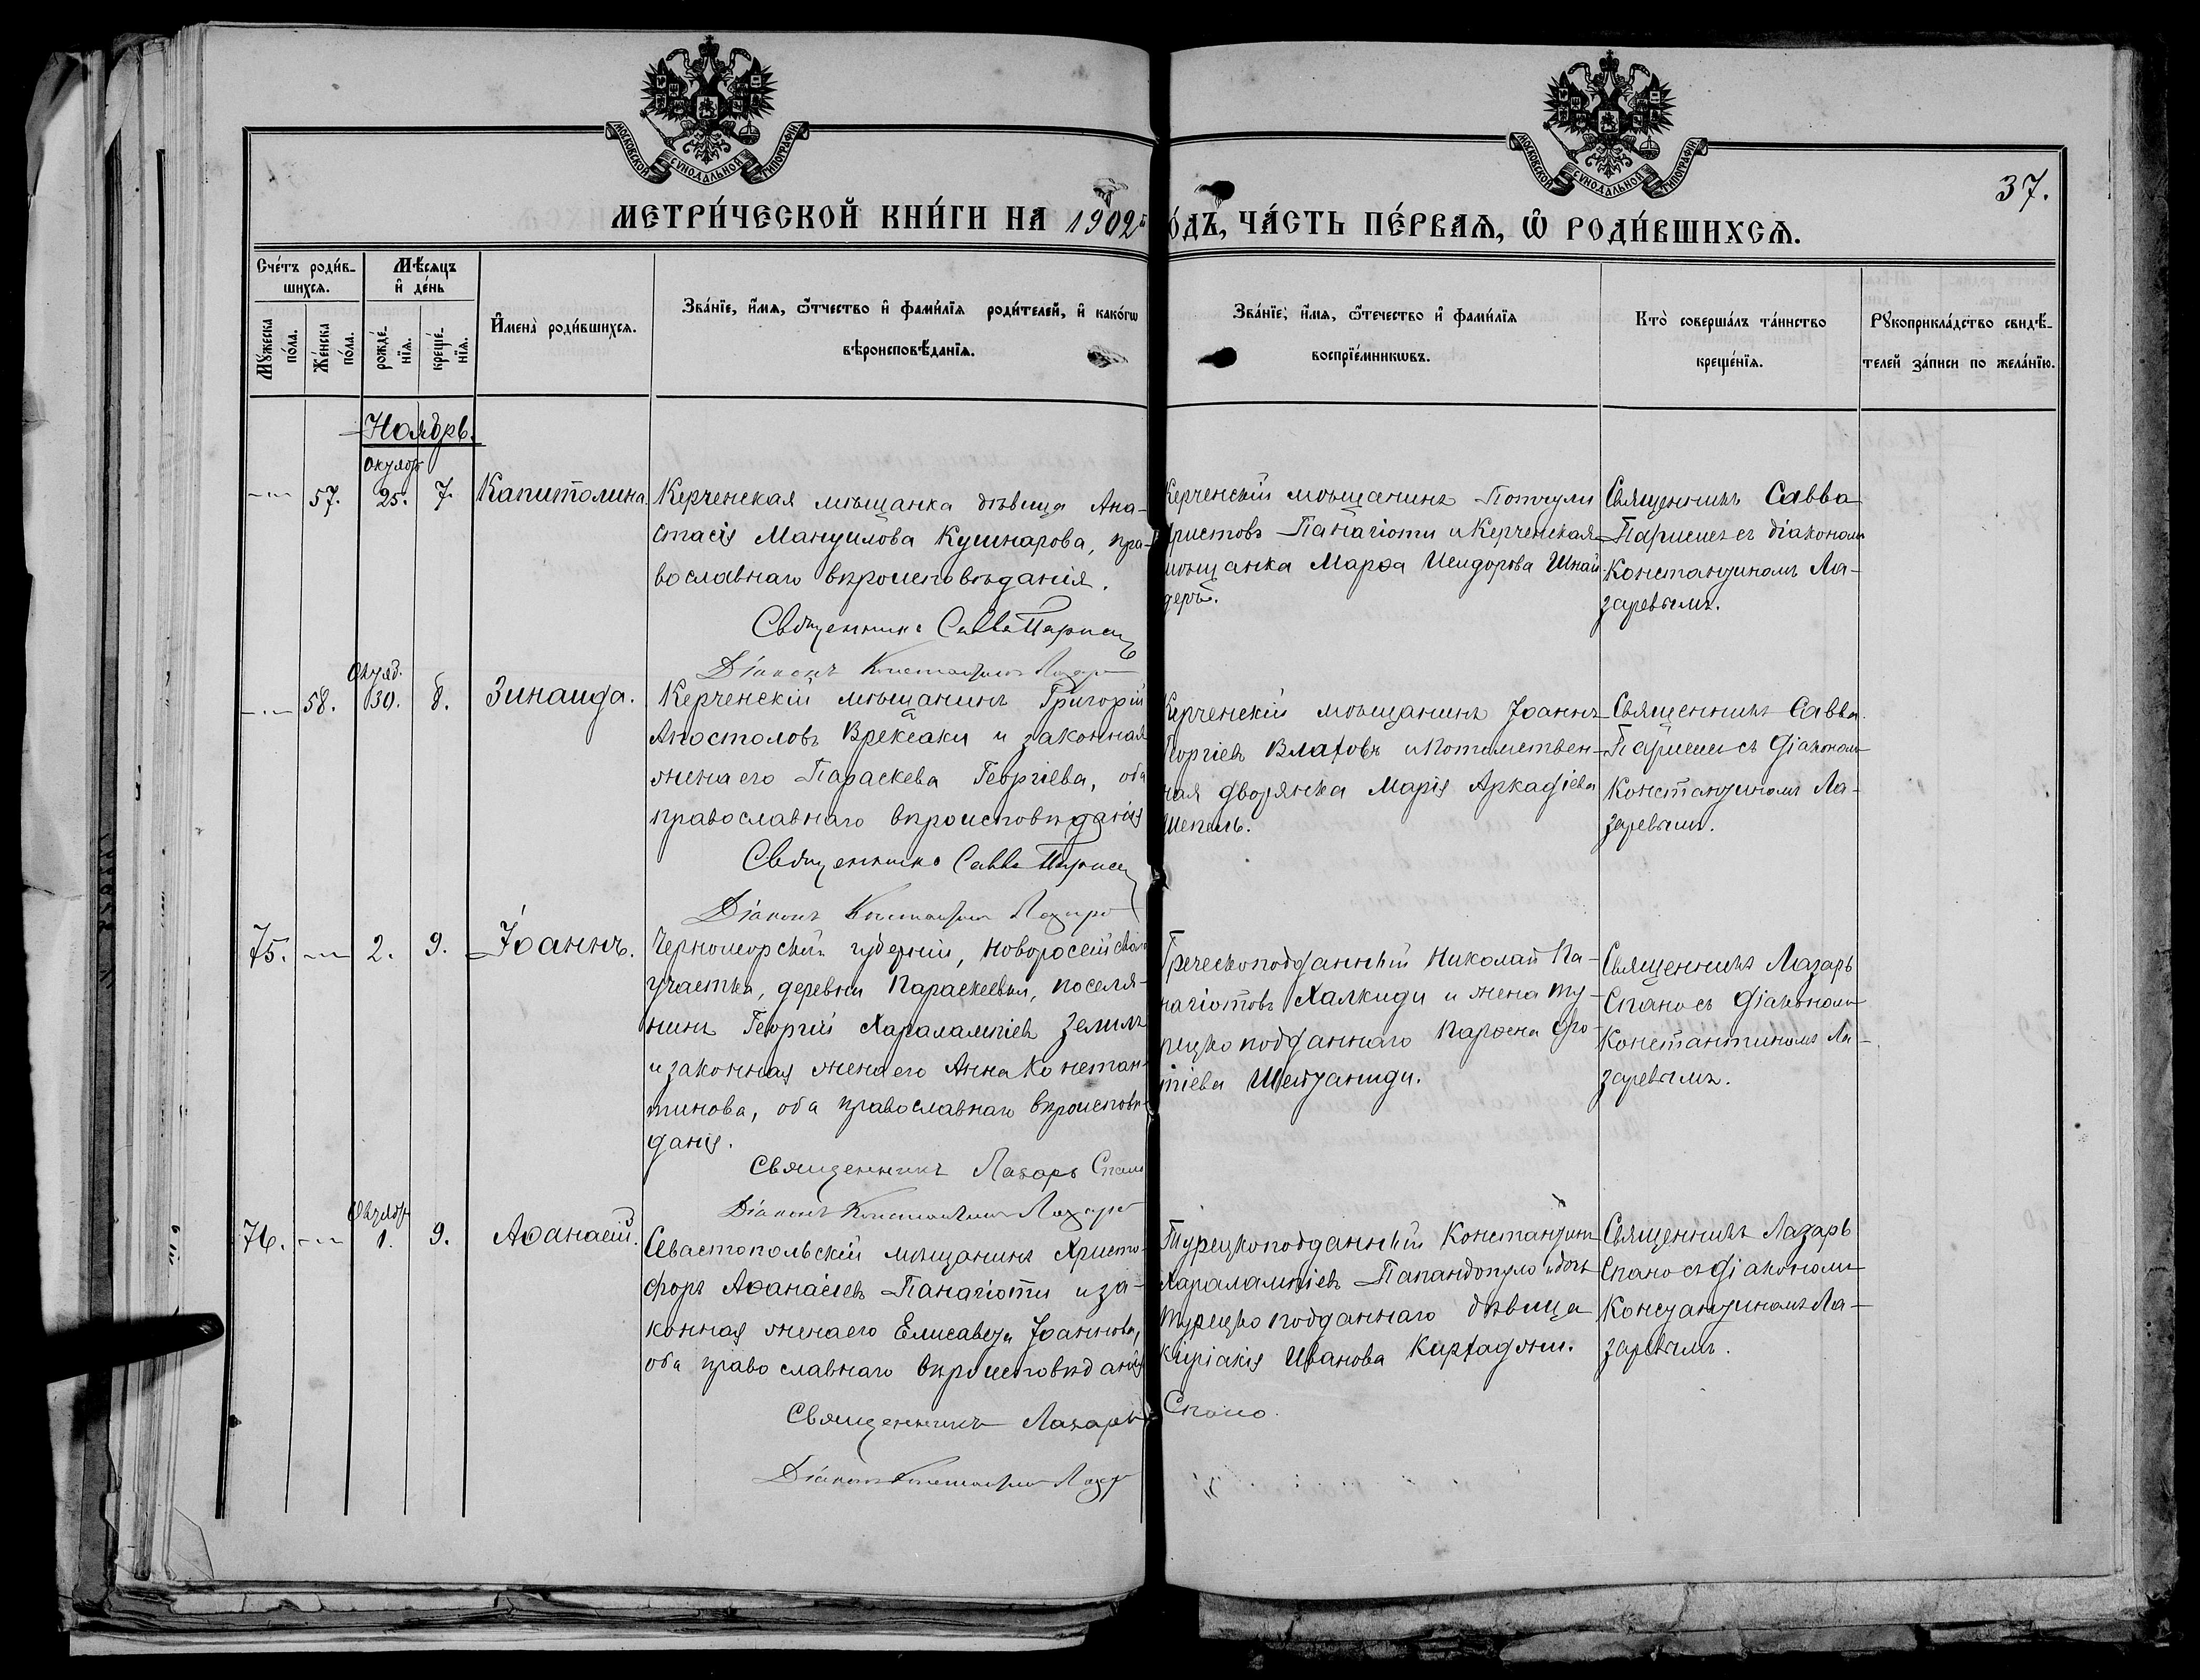 МОСКОВСКОЙ СУНОДАЛЬНОЙ ТИПОГРАФІИ
МОСКОВСКОЙ СУНОДАЛЬНОЙ ТИПОГРАФІИ
37.
МЕТРИ́ЧЕСКОЙ КНИ́ГИ НА 1902й
О́ДЪ, ЧА́СТЬ ПЕ́РВАѦ, Ѡ҆ РОДИ́ВШИХСѦ.
Сче́тъ роди́в-
шихсѧ.
Мꙋжеска по́ла.
Же́нска по́ла.
Мѣ́сѧцъ
и҆ де́нь
рожде́-
нїѧ.
креще́-
нїѧ.
И҆мена̀ роди́вшихсѧ.
Зва́нїе, и҆́мѧ, ѻ҆́тчество и҆ фами́лїѧ роди́телей, и҆ како́гѡ
вѣроисповѣ́данїѧ.
Зва́нїе, и҆́мѧ, ѻ҆́течество и҆ фами́лїѧ
воспрїе́мникѡвъ.
Кто̀ соверша́лъ та́инство
креще́нїѧ.
Рꙋкоприкла́дство свидѣ́-
телей за́писи по жела́нїю.
Ноябрь.
Октяб
57. 25. 7. Капитолина
Керченская мѣщанка дѣвица Ана-
стасія Мануилова Кушнарова, пра-
вославнаго вѣроисповѣданія.
Священникъ Савва Париси
Діаконъ Константинъ Лазар
Керченскій мѣщанинъ
Христовъ Панагіоти и Керченская
мѣщанка Марѳа Исидорова Шнай-
деръ.
Священникъ Савва
Париси съ діакономъ
Константиномъ Ла-
заревымъ.
Октяб.
58. 30. 8. Зинаида.
Керченскій мѣщанинъ Григорій
Апостоловъ Врексаки и законная
жена его Параскева Георгіева, оба
православнаго вѣроисповѣданія
Священникъ Савва Париси
Діаконъ Константинъ Лазар
Керченскій мѣщанинъ Іоаннъ
Георгіевъ Влаховъ и потомствен-
ная дворянка Марія Аркадіева
Шепель.
Священникъ Савва
Париси съ діакономъ
Константиномъ Ла-
заревымъ.
75. 2. 9. Іоаннъ.
Черноморской губерніи, Новоросійскаго
участка, деревни Параскеевки, поселя-
нинъ Георгій Харалампіевъ
и законная жена его Анна Констан-
тинова, оба православнаго вѣроисповѣ-
данія.
Священникъ Лазарь Спано
Діаконъ Константинъ Лазар
Греческоподданный Николай Па-
нагіотовъ Халкиди и жена ту-
рецкоподданнаго Парѳена Фо-
тіева
Священникъ Лазарь
Спано съ діакономъ
Константиномъ Ла-
заревымъ.
Октябр
76. 1. 9. Аѳанасій.
Севастопольскій мѣщанинъ Христо-
форъ Аѳанасіевъ Панагіоти и за-
конная жена его Елисавета Іоаннова,
оба православнаго вѣроисповѣданія
Священникъ Лазарь Спано.
Діаконъ Константинъ Лазар
Турецкоподданный Константинъ
Харалампіевъ Папандопуло и дочь
турецкоподданнаго дѣвица
Киріакія Иванова
Священникъ Лазарь
Спано съ діакономъ
Константиномъ Ла-
заревымъ.